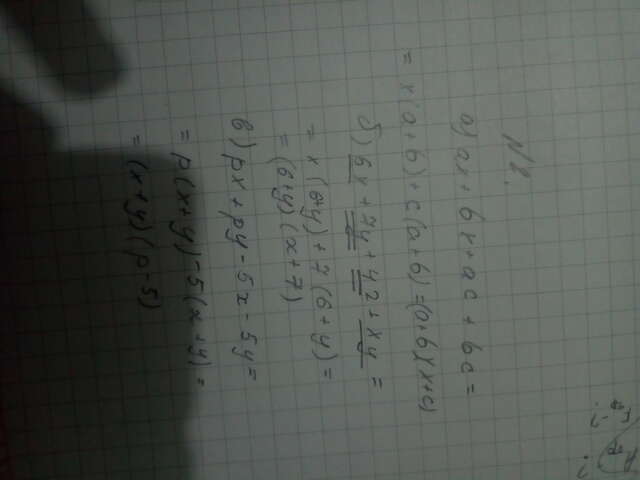 N 1.
а) ax + bx + ac + bc =
= x(a+b)+c(a+b)=(a+b)(x+c)
б) 6x + 7y + 42 + xy =
= x(6+y) + 7(6+y) =
= (6+y)(x+7)
в) px + py - 5x - 5y =
= p(x+y) - 5(x+y) =
= (x+y)(p-5)